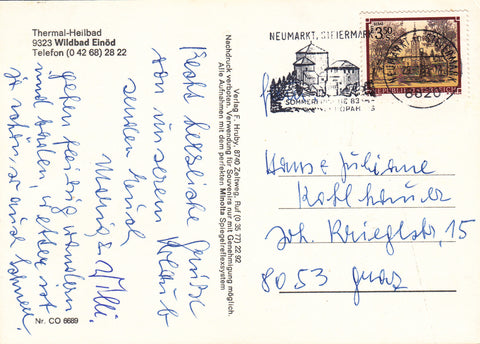 Thermal-Heilbad
9323 Wildbad Einöd
Telefon (0 42 68) 28 22
Recht herzliche Grüße
von unserem Urlaub
senden Euch
Maria & Willi.
gehen fleißig wandern
und baden, Wetter ist
ja schön, so muß
Nr. CO 6689
Verlag F. Hruby, 8740 Zeltweg, Ruf (0 35 77) 22 92
Nachdruck verboten. Verwendung für Souvenirs nur mit Genehmigung möglich.
Alle Aufnahmen mit dem perfekten Minolta Spiegelreflexsystem
NEUMARKT, STEIERMARK
SOMMERFRISCHE 83
EUROPA
8820
3.50
REPUBLIK ÖSTERREICH
Hans & Juliane
Kohlhauser
Joh. Krieglstr. 15
8053 Graz